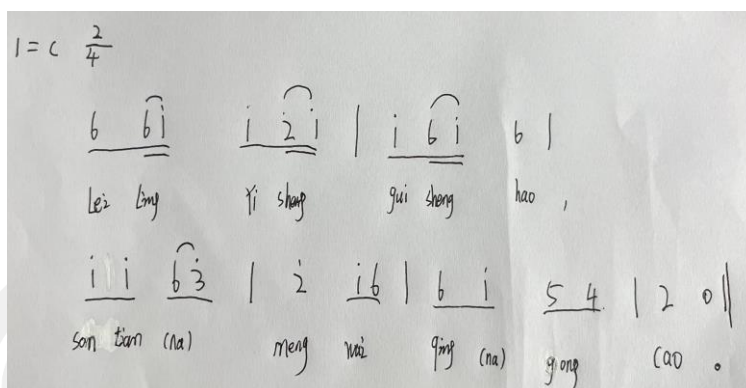 1 = C 2/4
6 6i i 2̇i | i 6i 6 |
Lei Ling Yi sheng gui sheng hao ,
i i 63̇ | 2̇ i6 | 6 i 5 4 | 2 0 ||
san tian (na) meng wai qing (na) gong cao 。